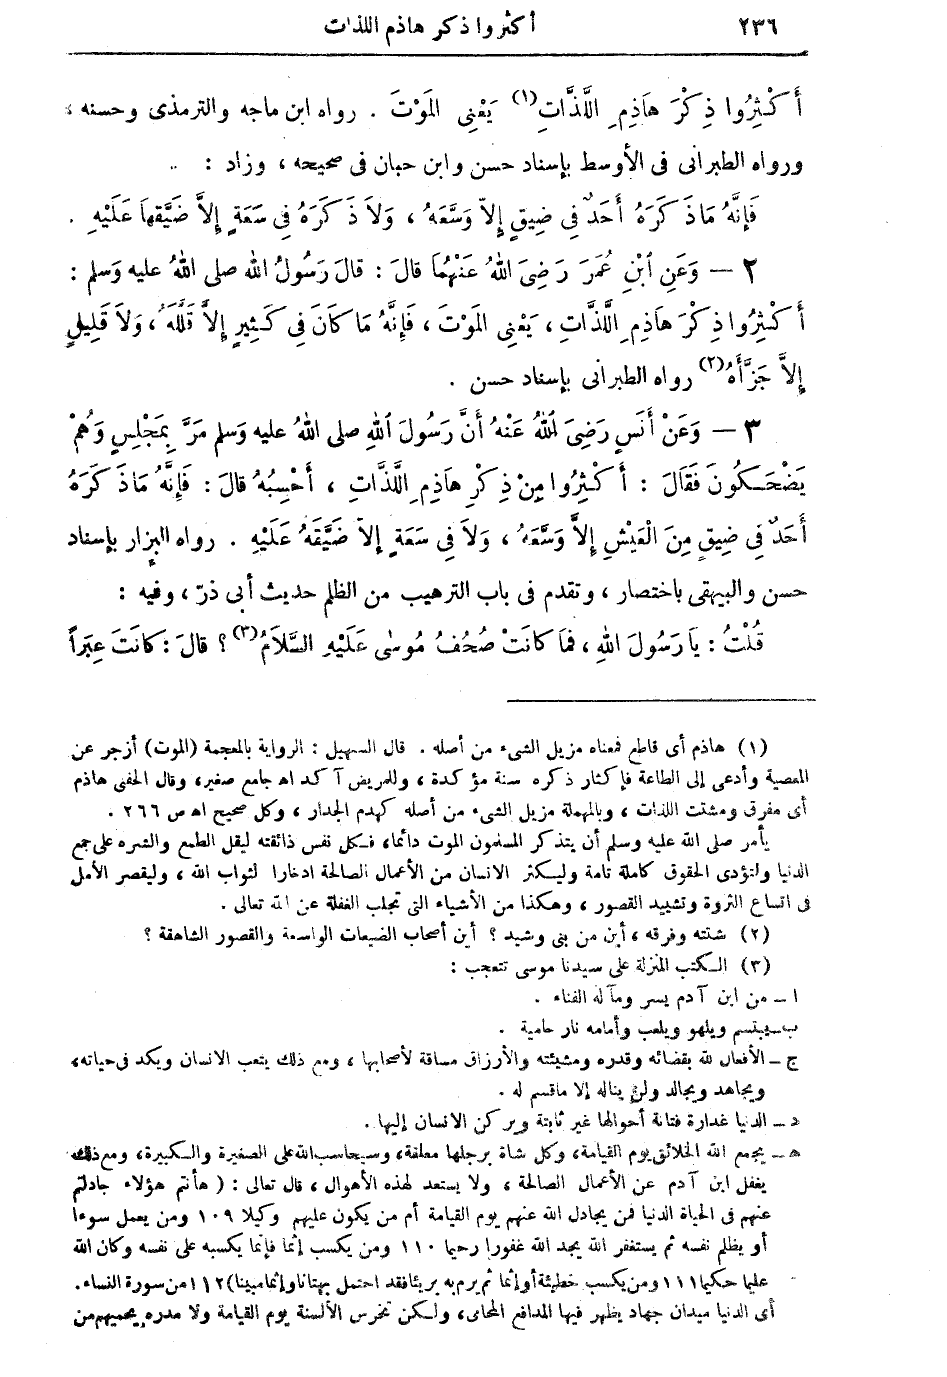 ٢٣٦ أكثروا ذكر هاذم اللذات
أَكْثِرُوا ذِكْرَ هَاذِمِ اللَّذَّاتِ(١) يَعْنِي المَوْتَ . رواه ابن ماجه والترمذى وحسنه ،
ورواه الطبرانى فى الأوسط بإسناد حسن وابن حبان فى صحيحه ، وزاد :
فَإِنَّهُ مَاذَكَرَهُ أَحَدٌ فِي ضِيقٍ إِلاَّ وَسَّعَهُ ، وَلاَ ذَكَرَهُ فِي سَعَةٍ إِلاَّ ضَيَّقَهَا عَلَيْهِ .
٢ — وَعَنِ ابْنِ عُمَرَ رَضِيَ اللهُ عَنْهُمَا قَالَ : قَالَ رَسُولُ الله صلى اللهُ عليه وَسَلم :
أَكْثِرُوا ذِكْرَ هَاذِمِ اللَّذَّاتِ ، يَعْنِي المَوْتَ ، فَإِنَّهُ مَا كَانَ فِي كَثِيرٍ إِلاَّ قَلَّلَهُ ، وَلاَ قَلِيلٍ
إِلاَّ جَزَّأَهُ(٢) رواه الطبرانى بإسناد حسن .
٣ — وَعَنْ أَنَسٍ رَضِيَ اللهُ عَنْهُ أَنَّ رَسُولَ اللهِ صلى اللهُ عليه وَسلم مَرَّ بِمَجْلِسٍ وَهُمْ
يَضْحَكُونَ فَقَالَ : أَكْثِرُوا مِنْ ذِكْرِ هَاذِمِ اللَّذَّاتِ ، أَحْسِبُهُ قَالَ : فَإِنَّهُ مَاذَكَرَهُ
أَحَدٌ فِي ضِيقٍ مِنَ الْعَيْشِ إِلاَّ وَسَّعَهُ ، وَلاَ فِي سَعَةٍ إِلاَّ ضَيَّقَهُ عَلَيْهِ . رواه البزار بإسناد
حسن والبيهقى باختصار ، وتقدم فى باب الترهيب من الظلم حديث أبى ذرّ ، وفيه :
قُلْتُ : يَا رَسُولَ اللهِ ، فَمَا كَانَتْ صُحُفُ مُوسَى عَلَيْهِ السَّلاَمُ(٣) ؟ قَالَ : كَانَتَ عِبَراً
(١) هاذم أى قاطع فمعناه مزيل الشىء من أصله . قال السهيل : الرواية بالمعجمة (الموت) أزجر عن
المعصية وأدعى إلى الطاعة فإكثار ذكره سنة مؤكدة ، وللمريض آكد اه جامع صغير، وقال الحفنى هاذم
أى مفرق ومشتت اللذات ، وبالمهملة مزيل الشىء من أصله كهدم الجدار ، وكل صحيح اه ص ٢٦٦ .
يأمر صلى الله عليه وسلم أن يتذكر المسلمون الموت دائما، فكل نفس ذائقته ليقل الطمع والشره على جمع
الدنيا ولتؤدى الحقوق كاملة تامة وليكثر الانسان من الأعمال الصالحة ادخارا لثواب الله ، وليقصر الأمل
فى اتساع الثروة وتشييد القصور ، وهكذا من الأشياء التى تجلب الغفلة عن الله تعالى .
(٢) شتته وفرقه ، أين من بنى وشيد ؟ أين أصحاب الضيعات الواسعة والقصور الشاهقة ؟
(٣) الكتب المنزلة على سيدنا موسى تتعجب :
ا — من ابن آدم يسر ومآله الفناء .
ب — يبتسم ويلهو ويلعب وأمامه نار حامية .
ج — الأفعال لله بقضائه وقدره ومشيئته والأرزاق مساقة لأصحابها ، ومع ذلك يتعب الانسان ويكد فى حياته،
ويجاهد ويجالد ولن يناله إلا ماقسم له .
د — الدنيا غدارة فتانة أحوالها غير ثابتة ويركن الانسان إليها .
ه — يجمع الله الخلائق يوم القيامة، وكل شاة برجلها معلقة، وسيحاسب الله على الصغيرة والكبيرة، ومع ذلك
يغفل ابن آدم عن الأعمال الصالحة ، ولا يستعد لهذه الأهوال ، قال تعالى : ( هأنتم هؤلاء جادلتم
عنهم فى الحياة الدنيا فمن يجادل الله عنهم يوم القيامة أم من يكون عليهم وكيلا ١٠٩ ومن يعمل سوءا
أو يظلم نفسه ثم يستغفر الله يجد الله غفورا رحيما ١١٠ ومن يكسب إثما فإنما يكسبه على نفسه وكان الله
عليما حكيما ١١١ ومن يكسب خطيئة أو إثما ثم يرم به بريئا فقد احتمل بهتانا وإثما مبينا) ١١٢ من سورة النساء.
أى الدنيا ميدان جهاد يظهر فيها المدافع المحاى، ولكن تخرس الألسنة يوم القيامة ولا مدره يحميهم من